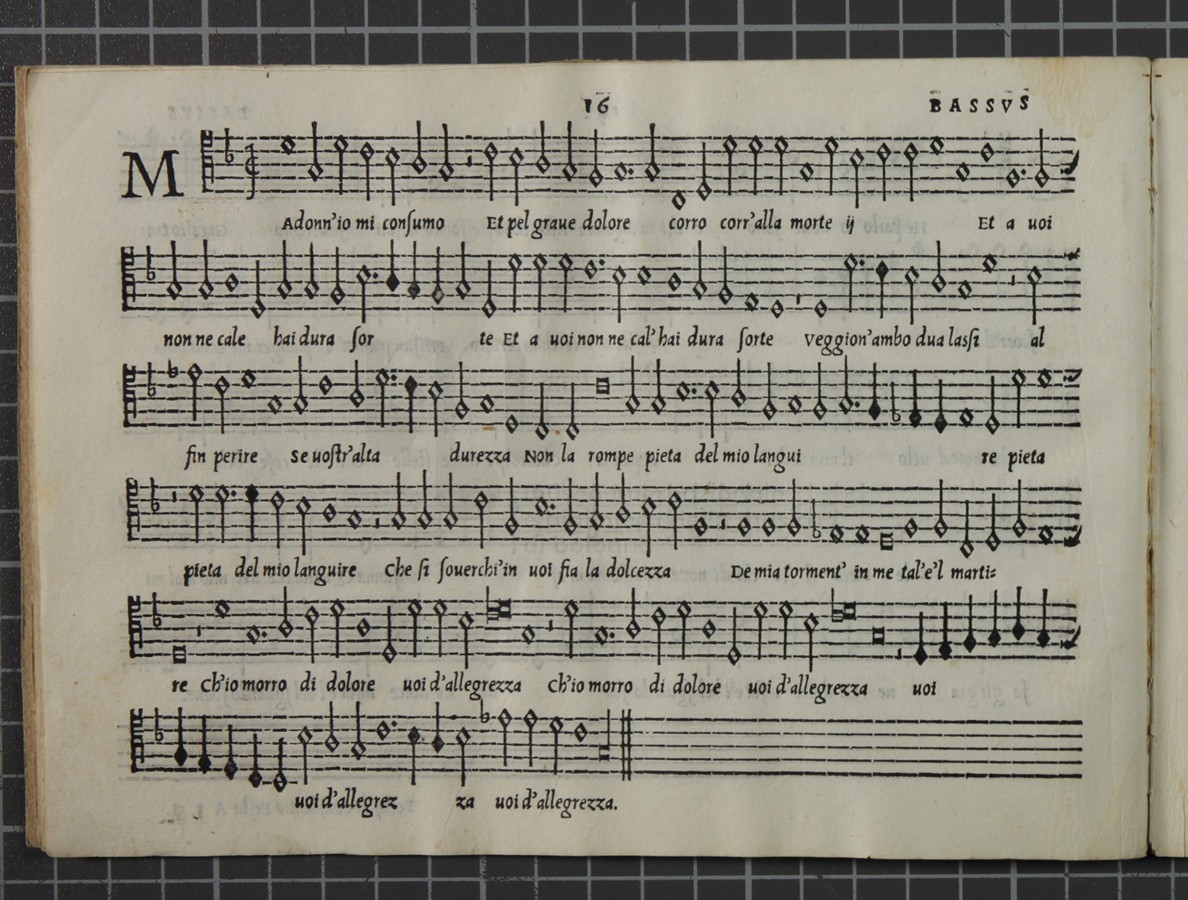 16 BASSVS
MAdonn'io mi conſumo Et pel graue dolore corro corr'alla morte ij Et a uoi
non ne cale hai dura ſor te Et a uoi non ne cal' hai dura ſorte Veggion'ambo dua laſſi al
fin perire Se uoſtr'alta durezza Non la rompe pieta del mio langui re pieta
pieta del mio languire Che ſi ſouerchi'in uoi ſia la dolcezza De mia torment' in me tal'e'l marti=
re Ch'io morro di dolore uoi d'allegrezza Ch'io morro di dolore uoi d'allegrezza uoi
uoi d'allegrez za uoi d'allegrezza.